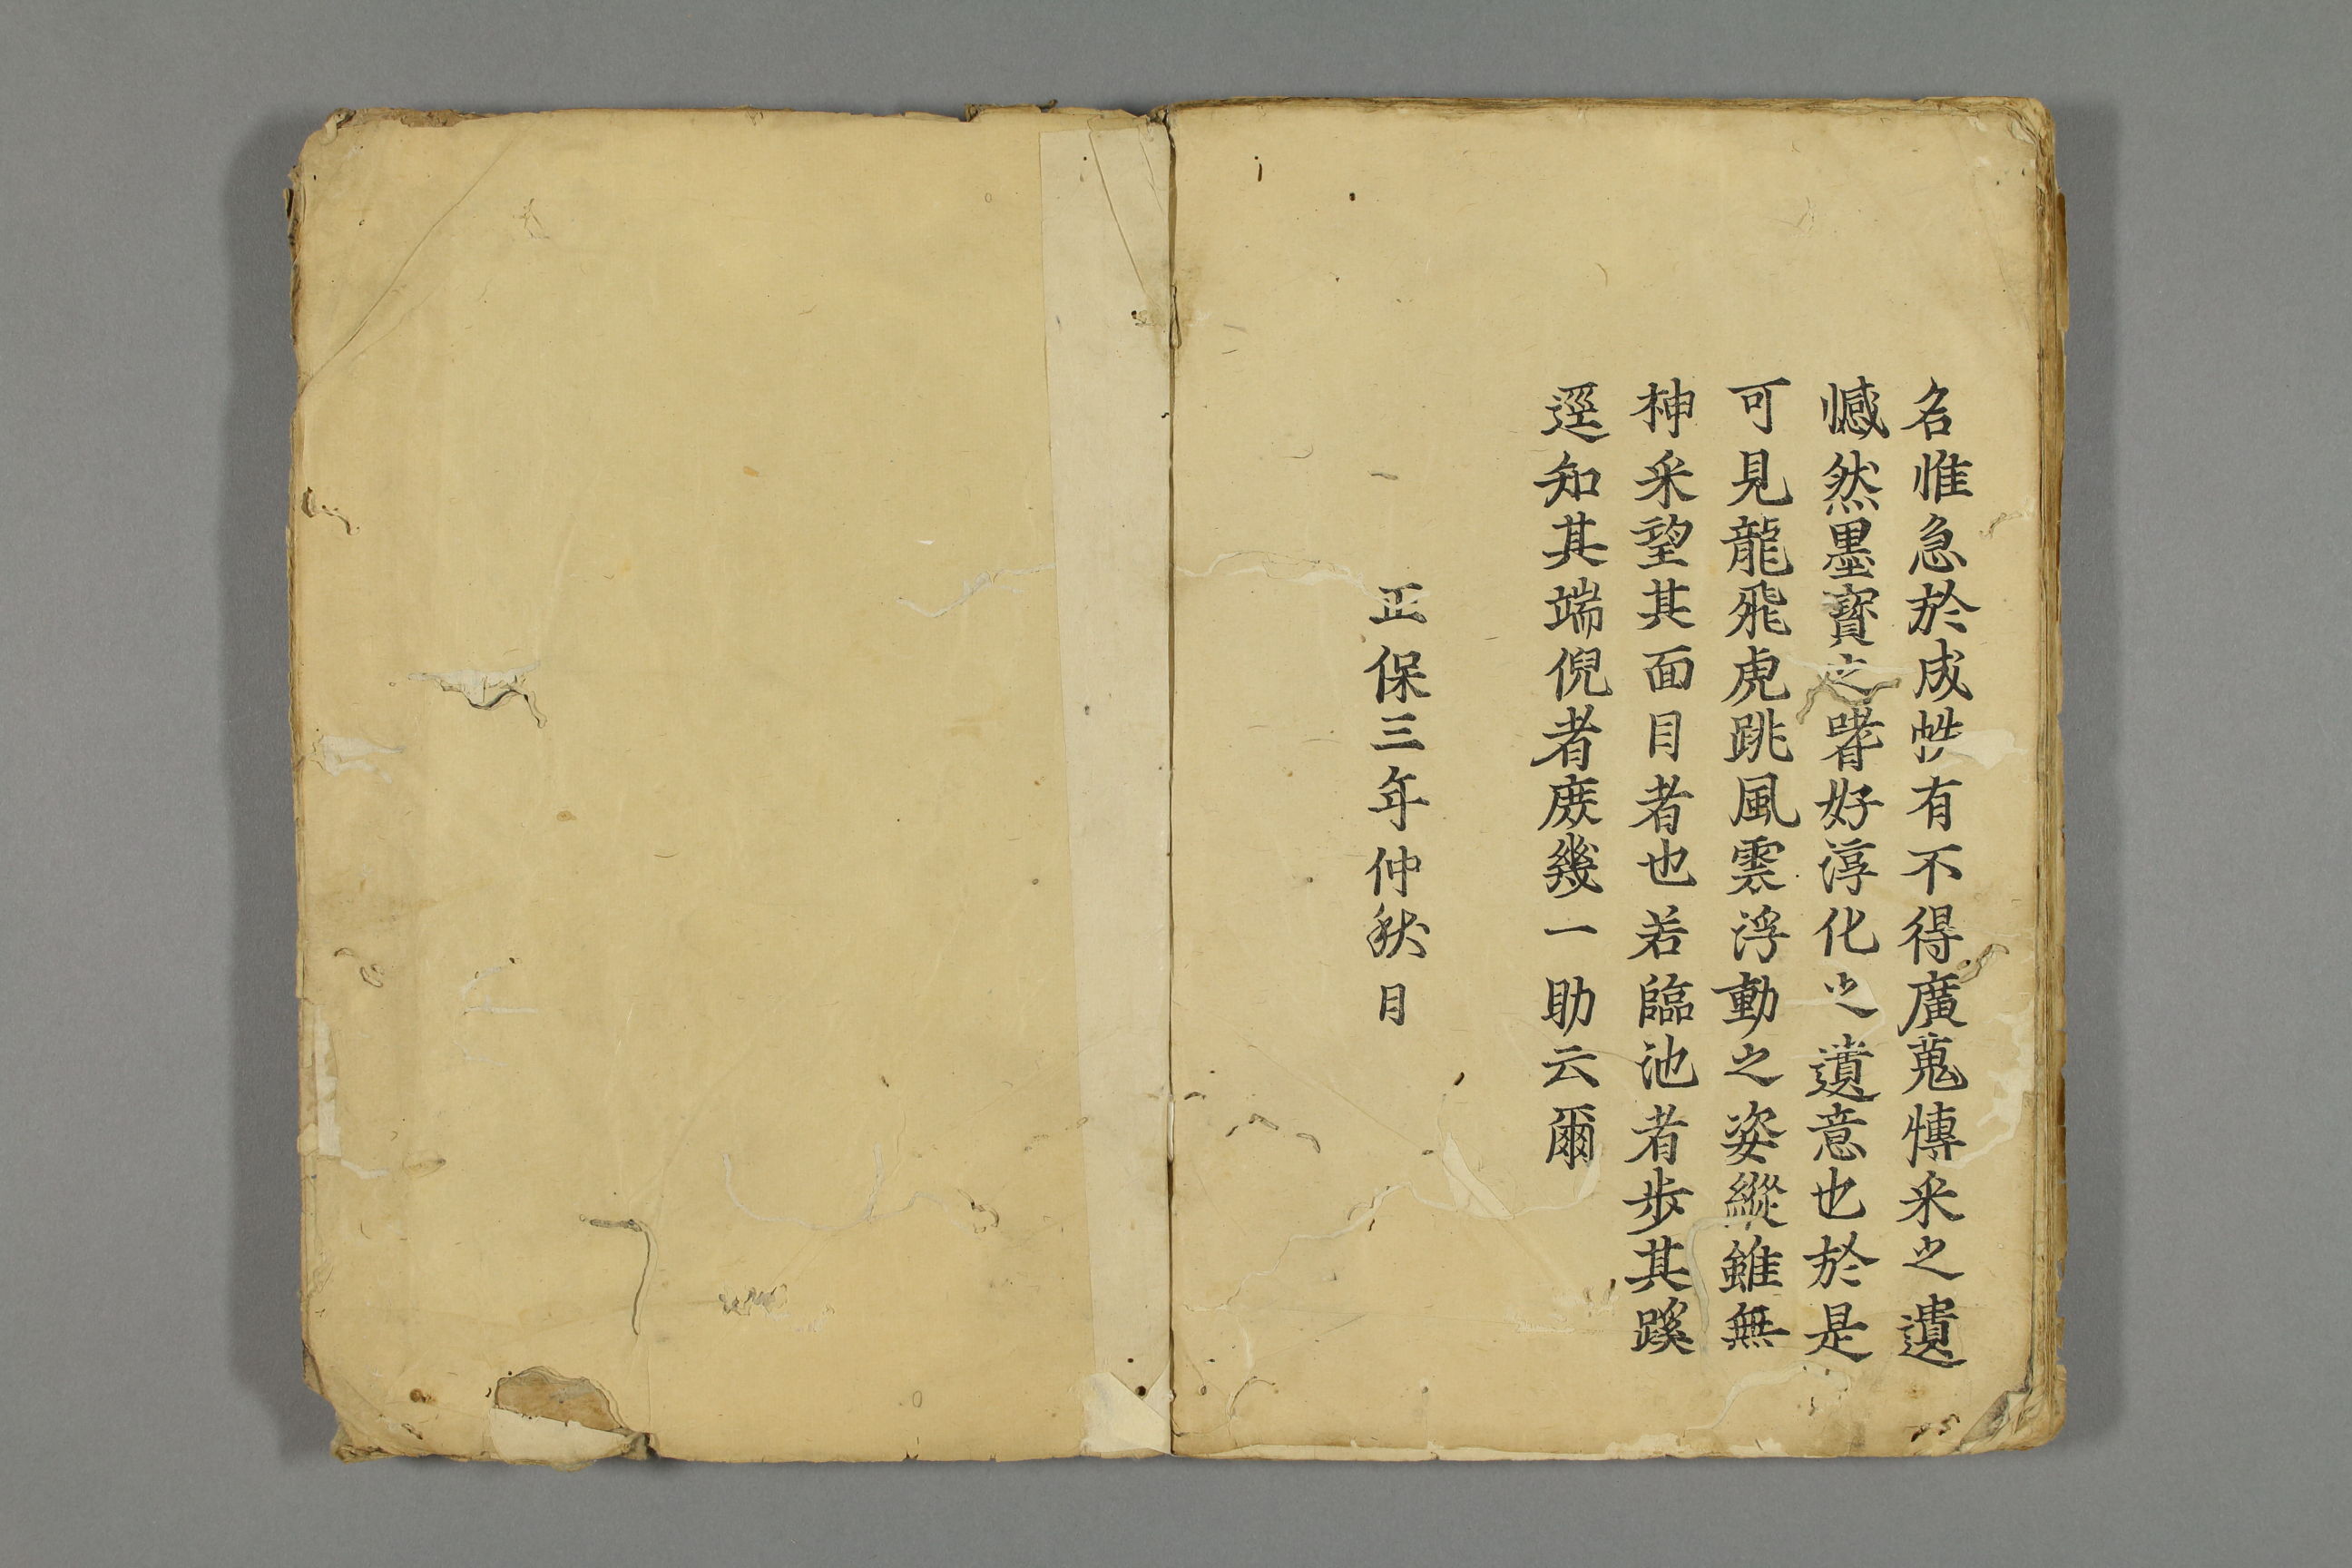 名惟急於成帙有不得廣蒐博采之遺
憾然墨寳之嗜好淳化之遺意也於是
可見龍飛虎跳風雲浮動之姿縱雖無
神采望其面目者也若臨池者步其蹊
逕知其端倪者庶幾一助云爾
正保三年仲秋日